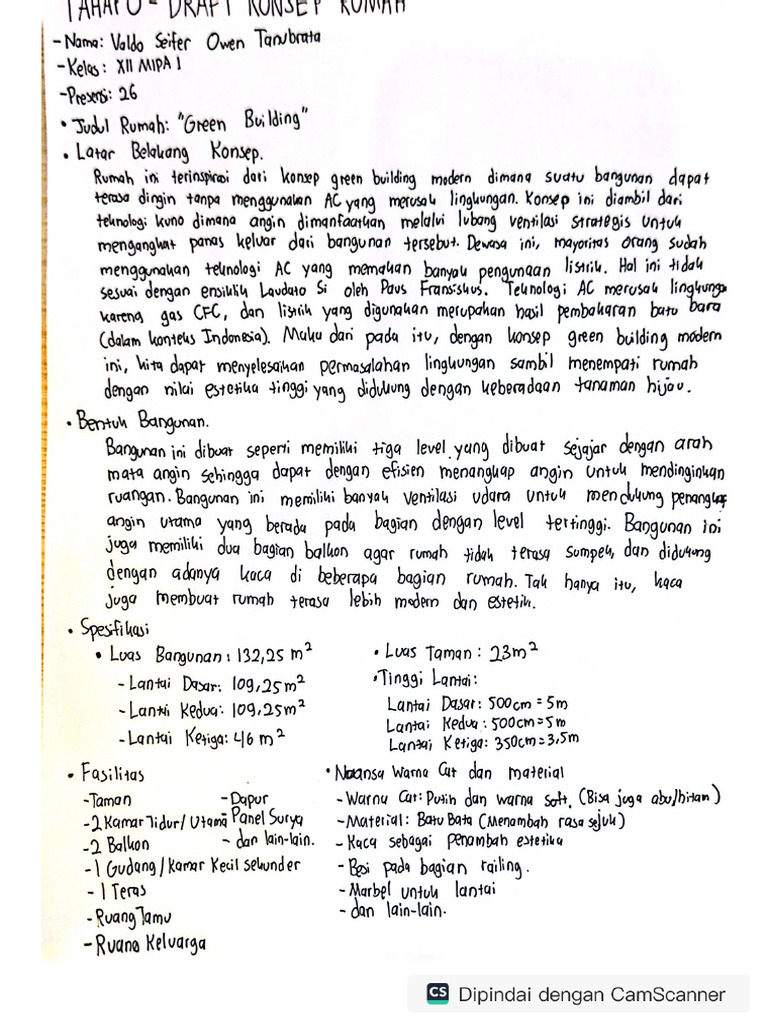 TAHAP 0 - DRAFT KONSEP RUMAH
- Nama: Valdo Seifer Owen Tanubrata
- Kelas: XII MIPA 1
- Presensi: 26
• Judul Rumah: "Green Building"
• Latar Belakang Konsep.
Rumah ini terinspirasi dari konsep green building modern dimana suatu bangunan dapat
terasa dingin tanpa menggunakan AC yang merusak lingkungan. Konsep ini diambil dari
teknologi kuno dimana angin dimanfaatkan melalui lubang ventilasi strategis untuk
mengangkat panas keluar dari bangunan tersebut. Dewasa ini, mayoritas orang sudah
menggunakan teknologi AC yang memakan banyak pengunaan listrik. Hal ini tidak
sesuai dengan ensiklik Laudato Si oleh Paus Fransiskus. Teknologi AC merusak lingkungan
karena gas CFC, dan listrik yang digunakan merupakan hasil pembakaran batu bara
(dalam konteks Indonesia). Maka dari pada itu, dengan konsep green building modern
ini, kita dapat menyelesaikan permasalahan lingkungan sambil menempati rumah
dengan nilai estetika tinggi yang didukung dengan keberadaan tanaman hijau.
• Bentuk Bangunan.
Bangunan ini dibuat seperti memiliki tiga level yang dibuat sejajar dengan arah
mata angin sehingga dapat dengan efisien menangkap angin untuk mendinginkan
ruangan. Bangunan ini memiliki banyak ventilasi udara untuk mendukung penangkap
angin utama yang berada pada bagian dengan level tertinggi. Bangunan ini
juga memiliki dua bagian balkon agar rumah tidak terasa sumpek, dan didukung
dengan adanya kaca di beberapa bagian rumah. Tak hanya itu, kaca
juga membuat rumah terasa lebih modern dan estetik.
• Spesifikasi
• Luas Bangunan: 132,25 m²
- Lantai Dasar: 109,25 m²
- Lantai Kedua: 109,25 m²
- Lantai Ketiga: 46 m²
• Luas Taman: 23 m²
• Tinggi Lantai:
Lantai Dasar: 500cm = 5m
Lantai Kedua: 500cm = 5m
Lantai Ketiga: 350cm = 3,5m
• Fasilitas
- Taman
- 2 Kamar Tidur/ Utama
- 2 Balkon
- 1 Gudang / Kamar Kecil sekunder
- 1 Teras
- Ruang Tamu
- Ruang Keluarga
- Dapur
Panel Surya
- dan lain-lain.
• Nuansa Warna Cat dan material
- Warna Cat: Putih dan warna soft. (Bisa juga abu/hitam)
- Material: Batu Bata (Menambah rasa sejuk)
- Kaca sebagai penambah estetika
- Besi pada bagian railing.
- Marbel untuk lantai
- dan lain-lain.
CS Dipindai dengan CamScanner